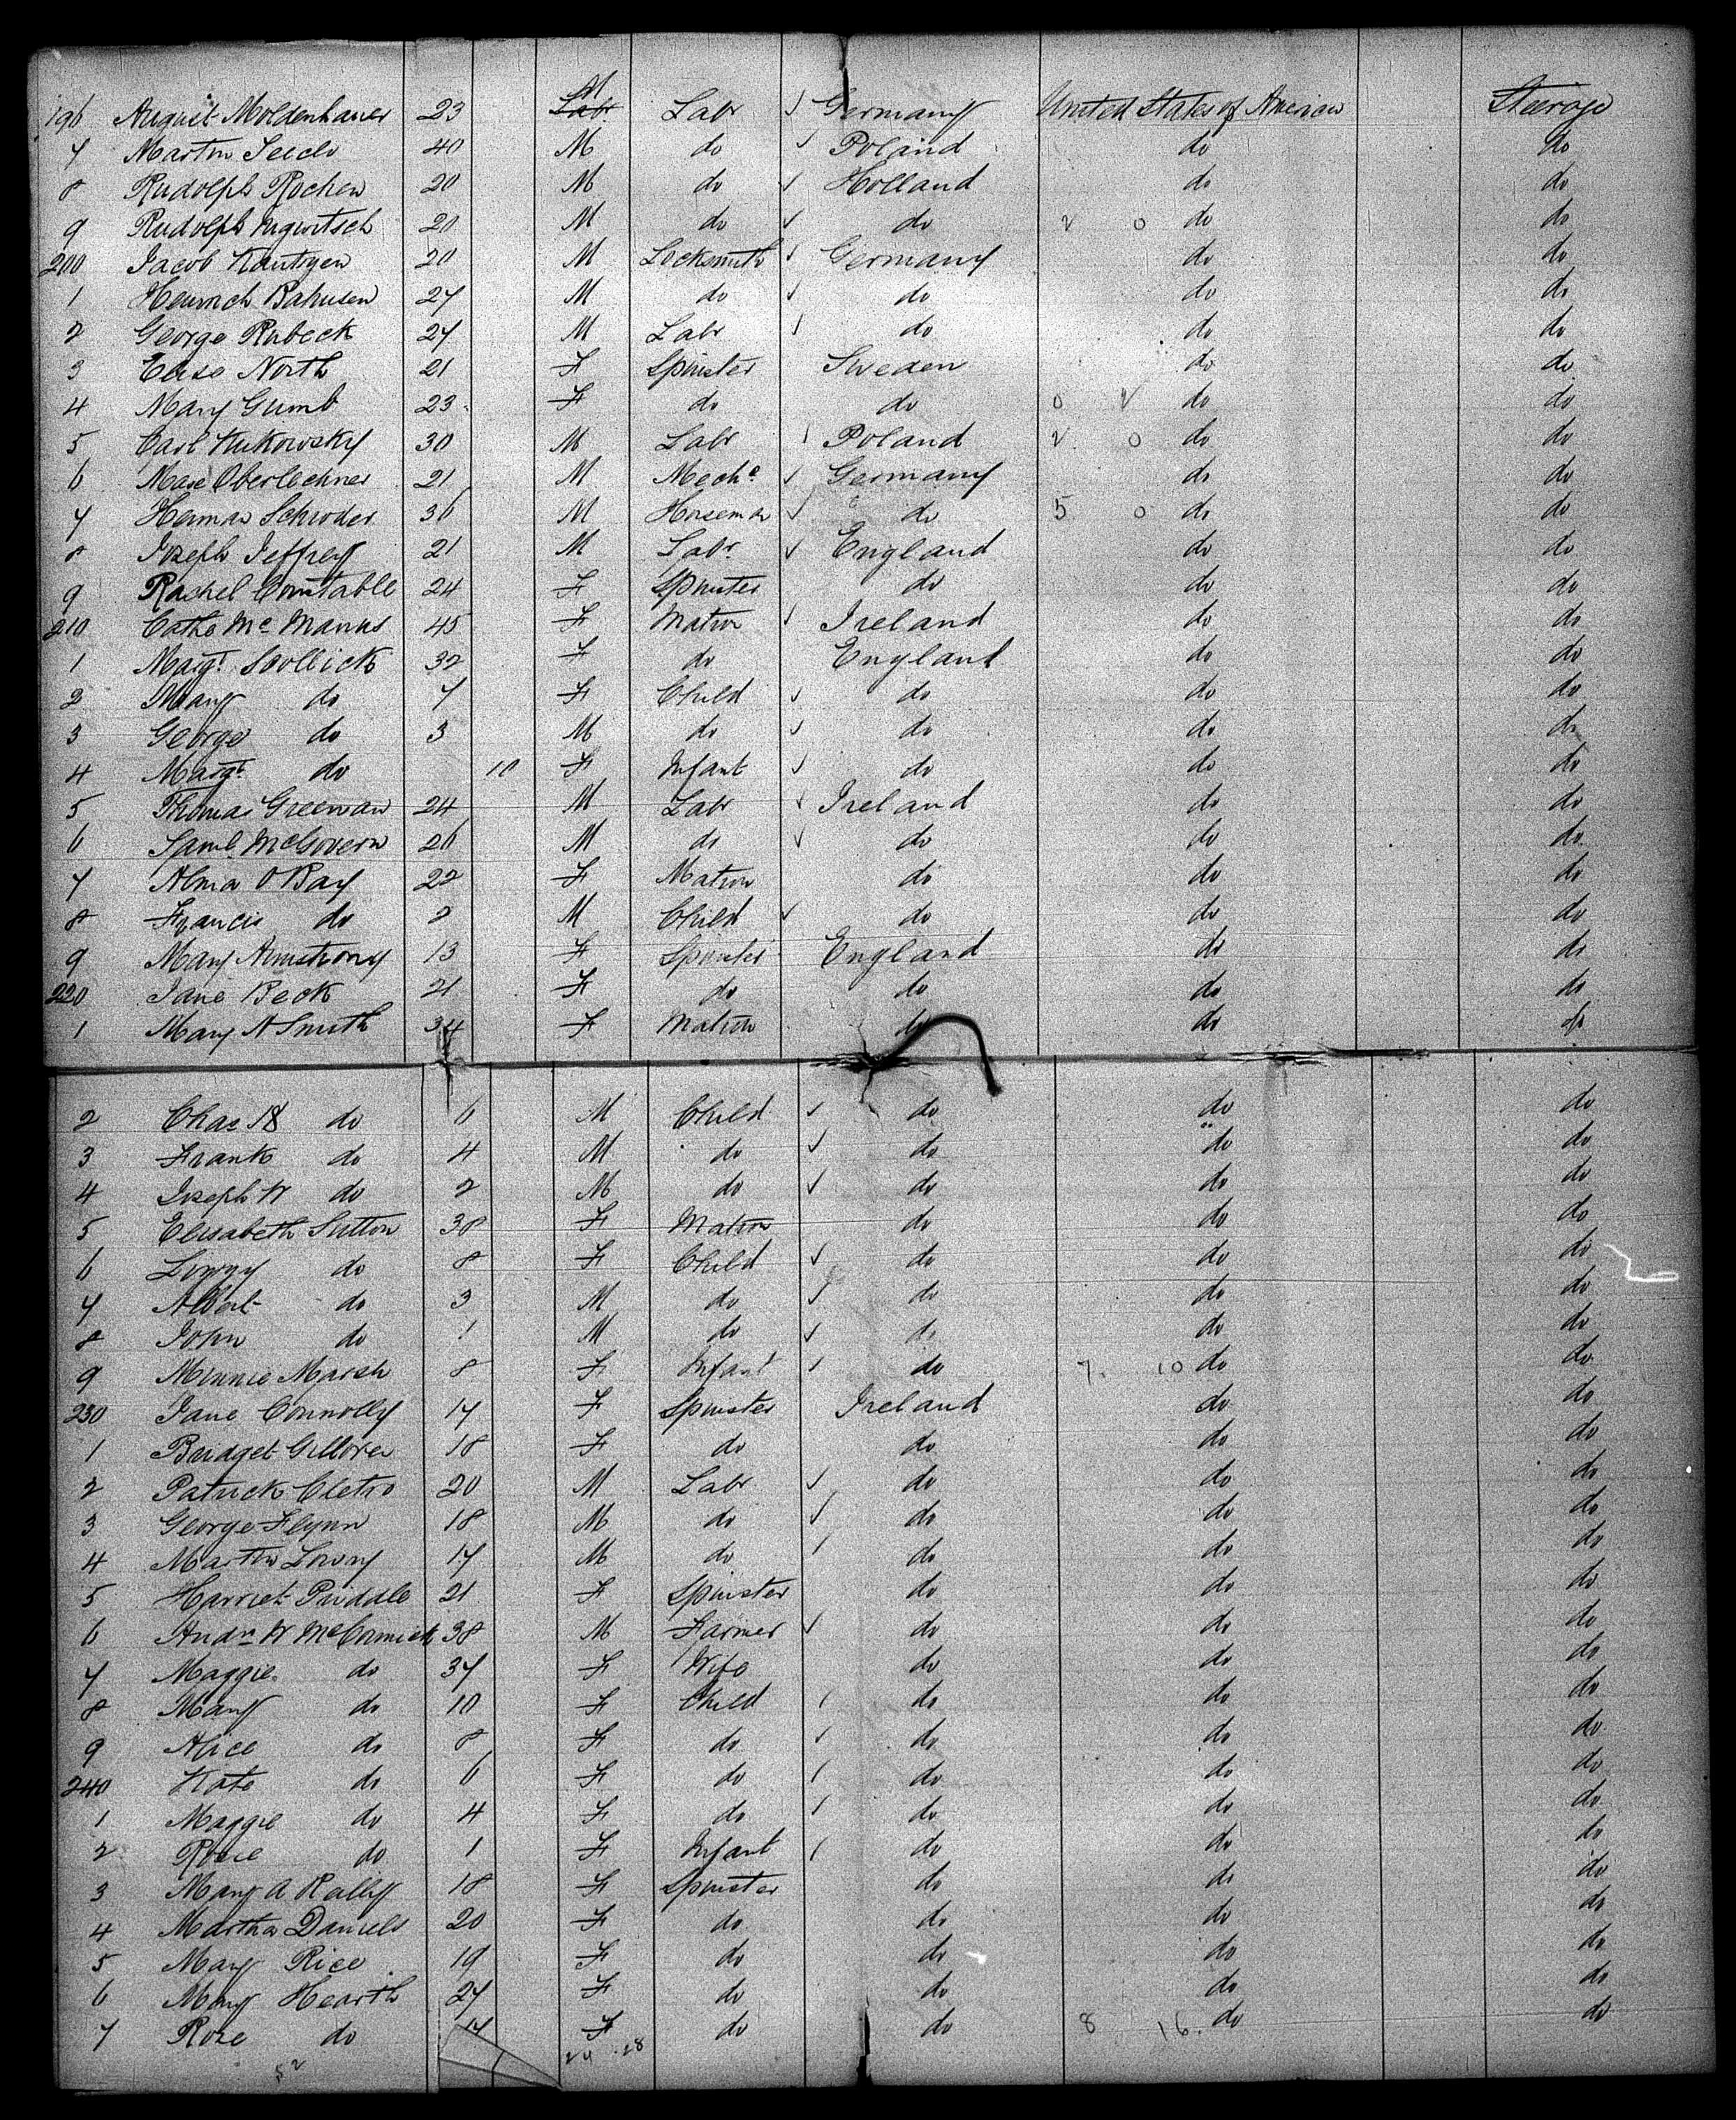 196 August Moldenhauer 23 M Labr Labr ✓ Germany United States of America Steerage
7 Martin 40 M do ✓ Poland do do
8 Rudolph Rochen 20 M do ✓ Holland do do
9 Rudolph 20 M do ✓ do 2 0 do do
200 Jacob 20 M Locksmith ✓ Germany do do
1 Heinrich Bahusen 27 M do ✓ do do do
2 George Rubeck 27 M Labr ✓ do do do
3 Elise North 21 F Spinster Sweden do do
4 Mary Gumb 23 F do do 0 2 do do
5 Carl Kukowsky 30 M Labr ✓ Poland 2 0 do do
6 Maxe Oberlechner 21 M Mech. ✓ Germany do do
7 Herman Schroder 36 M Horseman ✓ do 5 0 do do
8 Joseph Jeffrey 21 M Labr ✓ England do do
9 Rachel Constable 24 F Spinster do do do
210 Cathe Mc Manus 45 F Matron ✓ Ireland do do
1 Margt Scollick 32 F do England do do
2 Mary do 7 F Child ✓ do do do
3 George do 3 M do ✓ do do do
4 Margt do 10 F Infant ✓ do do do
5 Thomas Greenan 24 M Labr ✓ Ireland do do
6 Saml McGovern 26 M do ✓ do do do
7 Alma O Bay 22 F Matron do do do
8 Francis do 2 M Child ✓ do do do
9 Mary Armstrong 13 F Spinster England do do
220 Jane Beck 21 F do do do do
1 Mary A Smith 34 F Matron do do do
2 Chas do 6 M Child ✓ do do do
3 Frank do 4 M do ✓ do do do
4 Joseph W do 2 M do ✓ do do do
5 Elisabeth Sutton 38 F Matron do do do
6 do 8 F Child ✓ do do do
7 Albert do 3 M do ✓ do do do
8 John do 1 M do ✓ do do do
9 Minnie Marsh 8 F Infant ✓ do 7. 10 do do
230 Jane Connolly 17 F Spinster Ireland do do
1 Bridget 18 F do do do do
2 Patrick Cletro 20 M Labr ✓ do do do
3 George Flynn 18 M do ✓ do do do
4 Martin Lowry 17 M do ✓ do do do
5 Harriet Priddle 21 F Spinster do do do
6 Andw W McCormick 38 M Farmer ✓ do do do
7 Maggie do 37 F Wife do do do
8 Mary do 10 F Child ✓ do do do
9 Alice do 8 F do ✓ do do do
240 Kate do 6 F do ✓ do do do
1 Maggie do 4 F do ✓ do do do
2 Rosie do 1 F Infant ✓ do do do
3 Mary A Reilly 18 F Spinster do do do
4 Martha Daniels 20 F do do do do
5 Mary Rice 19 F do do do do
6 Mary Hearth 27 F do do do do
7 Rose do F do do 8 16. do do
52 24 28